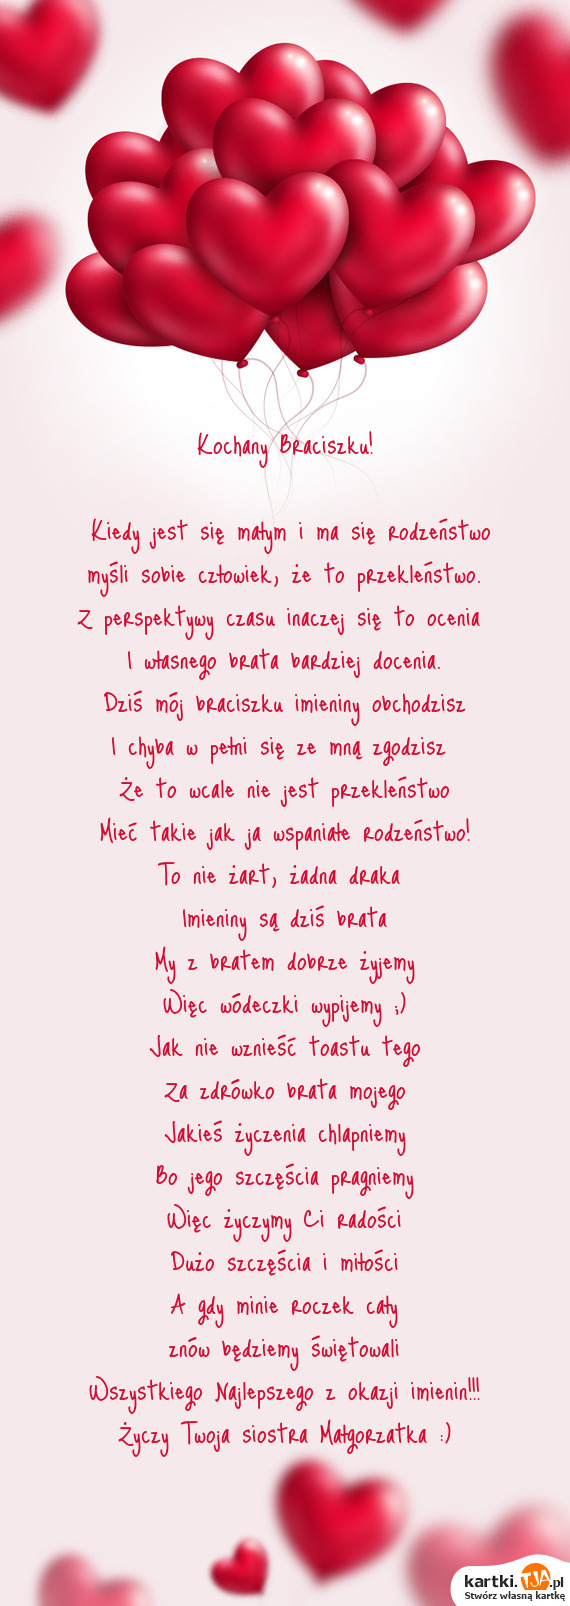 Kochany Braciszku!
Kiedy jest się małym i ma się rodzeństwo
myśli sobie człowiek, że to przekleństwo.
Z perspektywy czasu inaczej się to ocenia
I własnego brata bardziej docenia.
Dziś mój braciszku imieniny obchodzisz
I chyba w pełni się ze mną zgodzisz
Że to wcale nie jest przekleństwo
Mieć takie jak ja wspaniałe rodzeństwo!
To nie żart, żadna draka
Imieniny są dziś brata
My z bratem dobrze żyjemy
Więc wódeczki wypijemy ;)
Jak nie wznieść toastu tego
Za zdrówko brata mojego
Jakieś życzenia chlapniemy
Bo jego szczęścia pragniemy
Więc życzymy Ci radości
Dużo szczęścia i miłości
A gdy minie roczek cały
znów będziemy świętowali
Wszystkiego Najlepszego z okazji imienin!!!
Życzy Twoja siostra Małgorzatka :)
kartki.TJA.pl
Stwórz własną kartkę